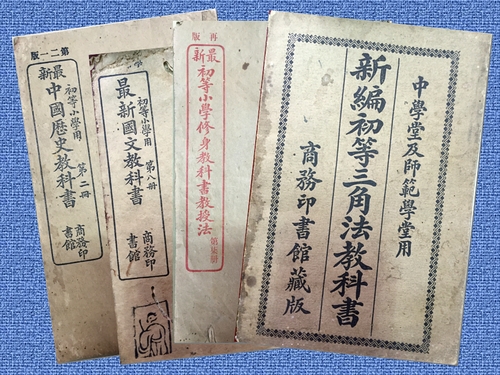 中學堂及師範學堂用
新編初等三角法教科書
商務印書館藏版
再版
最新
初等小學修身教科書教授法
第柒冊
初等小學用
最新國文教科書
第八冊
商務印書館
第二一版
最新
初等小學用
中國歷史教科書
第二冊
商務印書館